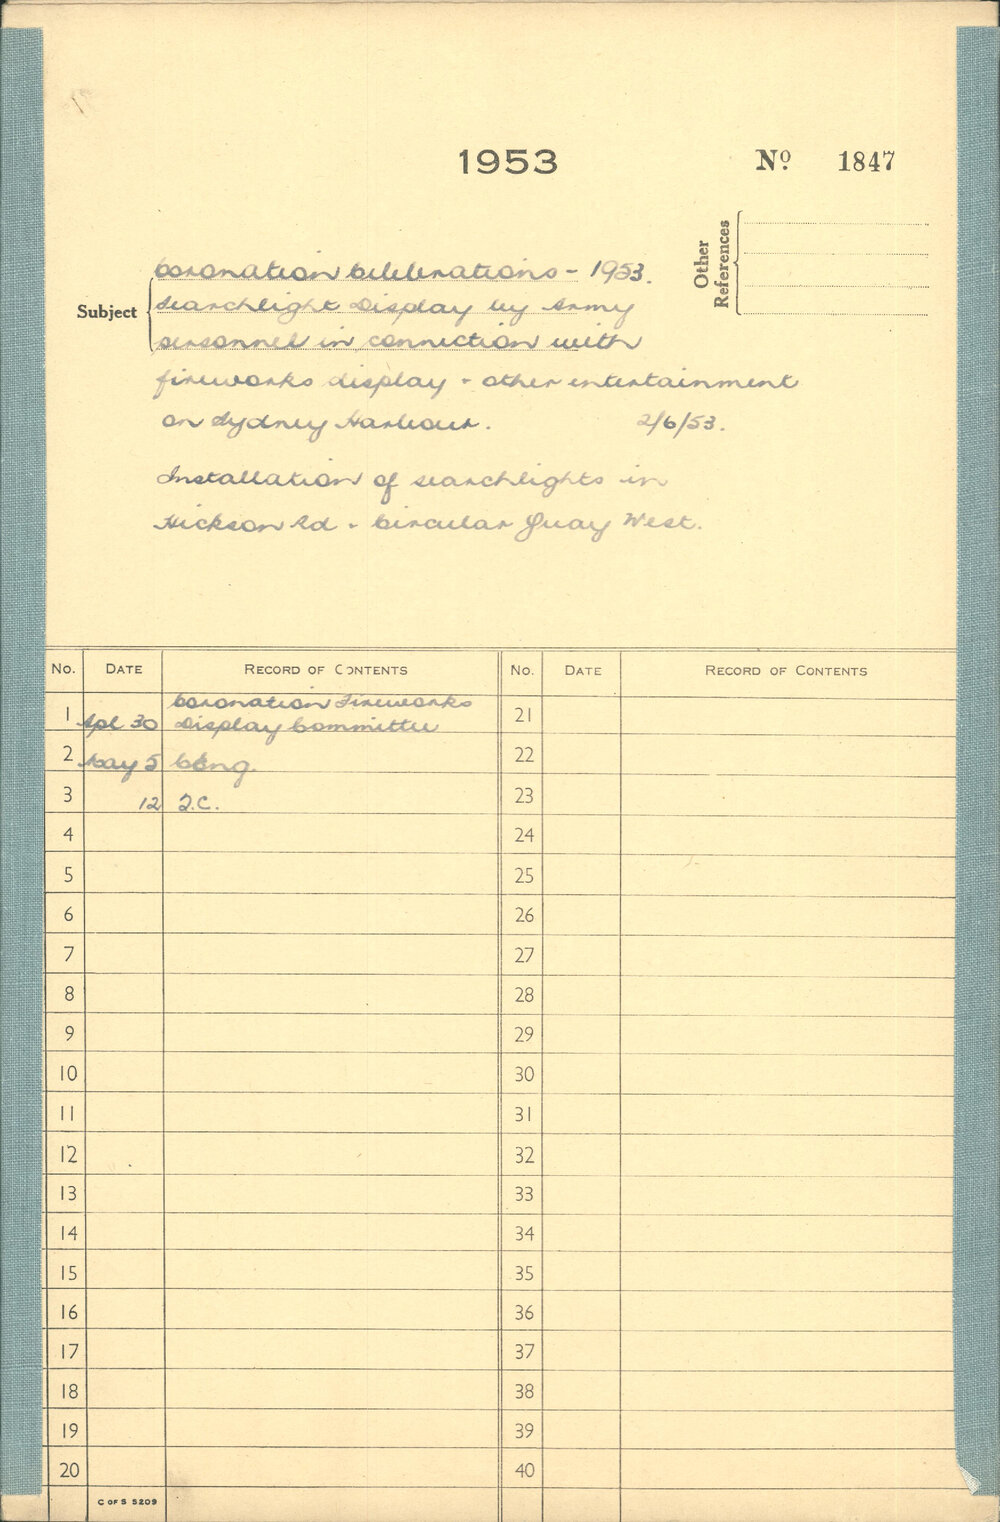 1953
Nº 1847
Other References
Subject
Coronation Celebrations - 1953.
Searchlight Display by Army
personnel in connection with
fireworks display - other entertainment
on Sydney Harbour. 2/6/53.
Installation of searchlights in
Hickson Rd - Circular Quay West.
No. DATE RECORD OF CONTENTS No. DATE RECORD OF CONTENTS
Coronation Fireworks
1 Apl 30 Display Committee 21
2 May 5 22
3 12 T.C. 23
4 24
5 25
6 26
7 27
8 28
9 29
10 30
11 31
12 32
13 33
14 34
15 35
16 36
17 37
18 38
19 39
20 40
C OF S 5209